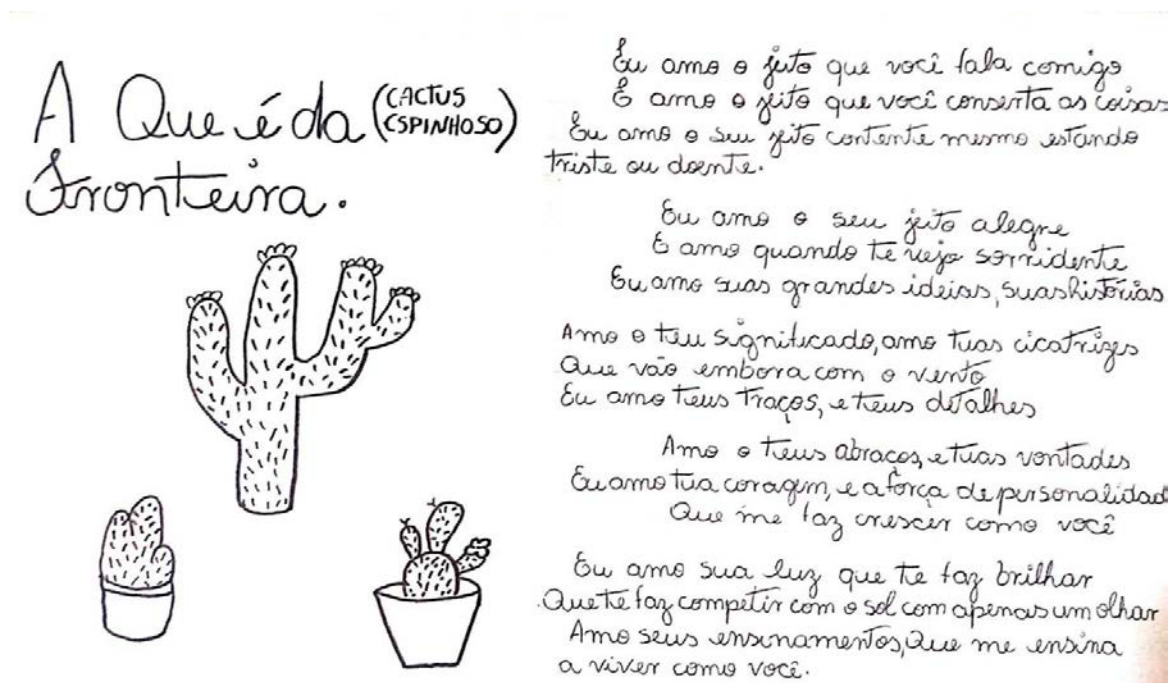 A Que é da (CACTUS
ESPINHOSO)
Fronteira.
Eu amo o jeito que você fala comigo
E amo o jeito que você conserta as coisas
Eu amo o seu jeito contente mesmo estando
triste ou doente.
Eu amo o seu jeito alegre
E amo quando te vejo sorridente
Eu amo suas grandes ideias, suas histórias
Amo o teu significado, amo tuas cicatrizes
Que vão embora com o vento
Eu amo teus traços, e teus detalhes
Amo o teus abraços, e tuas vontades
Eu amo tua coragem, e a força de personalidad
Que me faz crescer como você
Eu amo sua luz que te faz brilhar
Que te faz competir com o sol com apenas um olhar
Amo seus ensinamentos, Que me ensina
a viver como você.